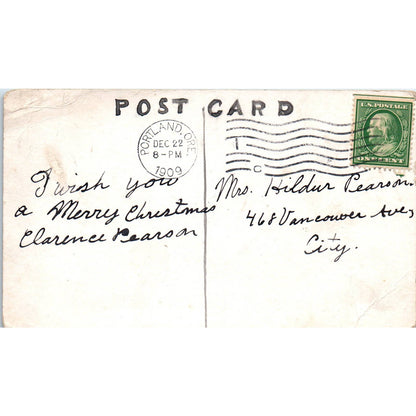 POST CARD
U.S. POSTAGE
ONE CENT
PORTLAND, ORE.
DEC 22
8-PM
1909
I wish you
a Merry Christmas
Clarence Pearson
Mrs. Hildur Pearson
468 Vancouver Ave,
City.